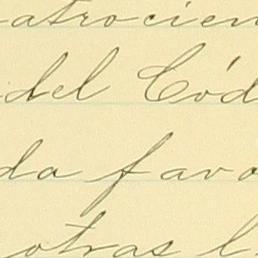 atrocien
del Cód
da favo
otras l